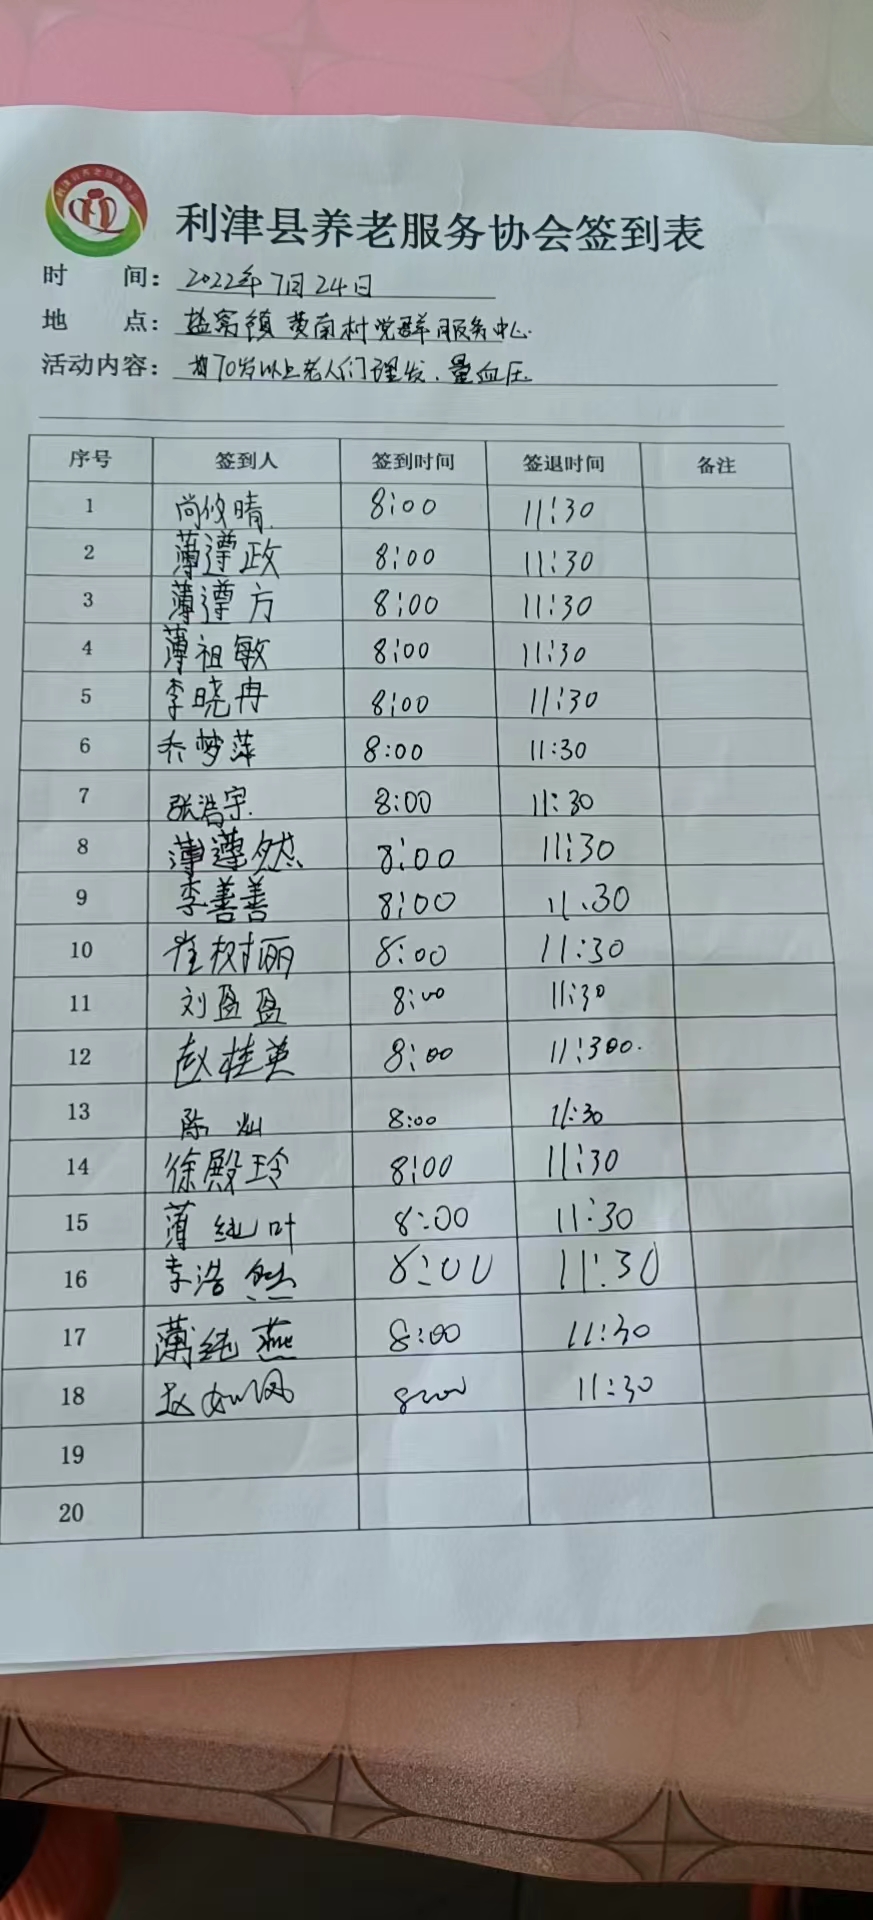 利津县养老服务协会签到表
时 间：2022年7月24日
地 点：盐窝镇黄南村党群服务中心
活动内容：为70岁以上老人们理发、量血压
序号 签到人 签到时间 签退时间 备注
1 尚攸晴 8:00 11:30
2 薄遵政 8:00 11:30
3 薄遵方 8:00 11:30
4 薄祖敏 8:00 11:30
5 李晓冉 8:00 11:30
6 乔梦萍 8:00 11:30
7 张浩宇 8:00 11:30
8 薄遵然 8:00 11:30
9 李善善 8:00 11:30
10 崔树丽 8:00 11:30
11 刘盈盈 8:00 11:30
12 赵桂英 8:00 11:300.
13 陈灿 8:00 11:30
14 徐殿玲 8:00 11:30
15 薄纯叶 8:00 11:30
16 李浩然 8:00 11:30
17 薄纯燕 8:00 11:30
18 赵如凤 8:00 11:30
19
20